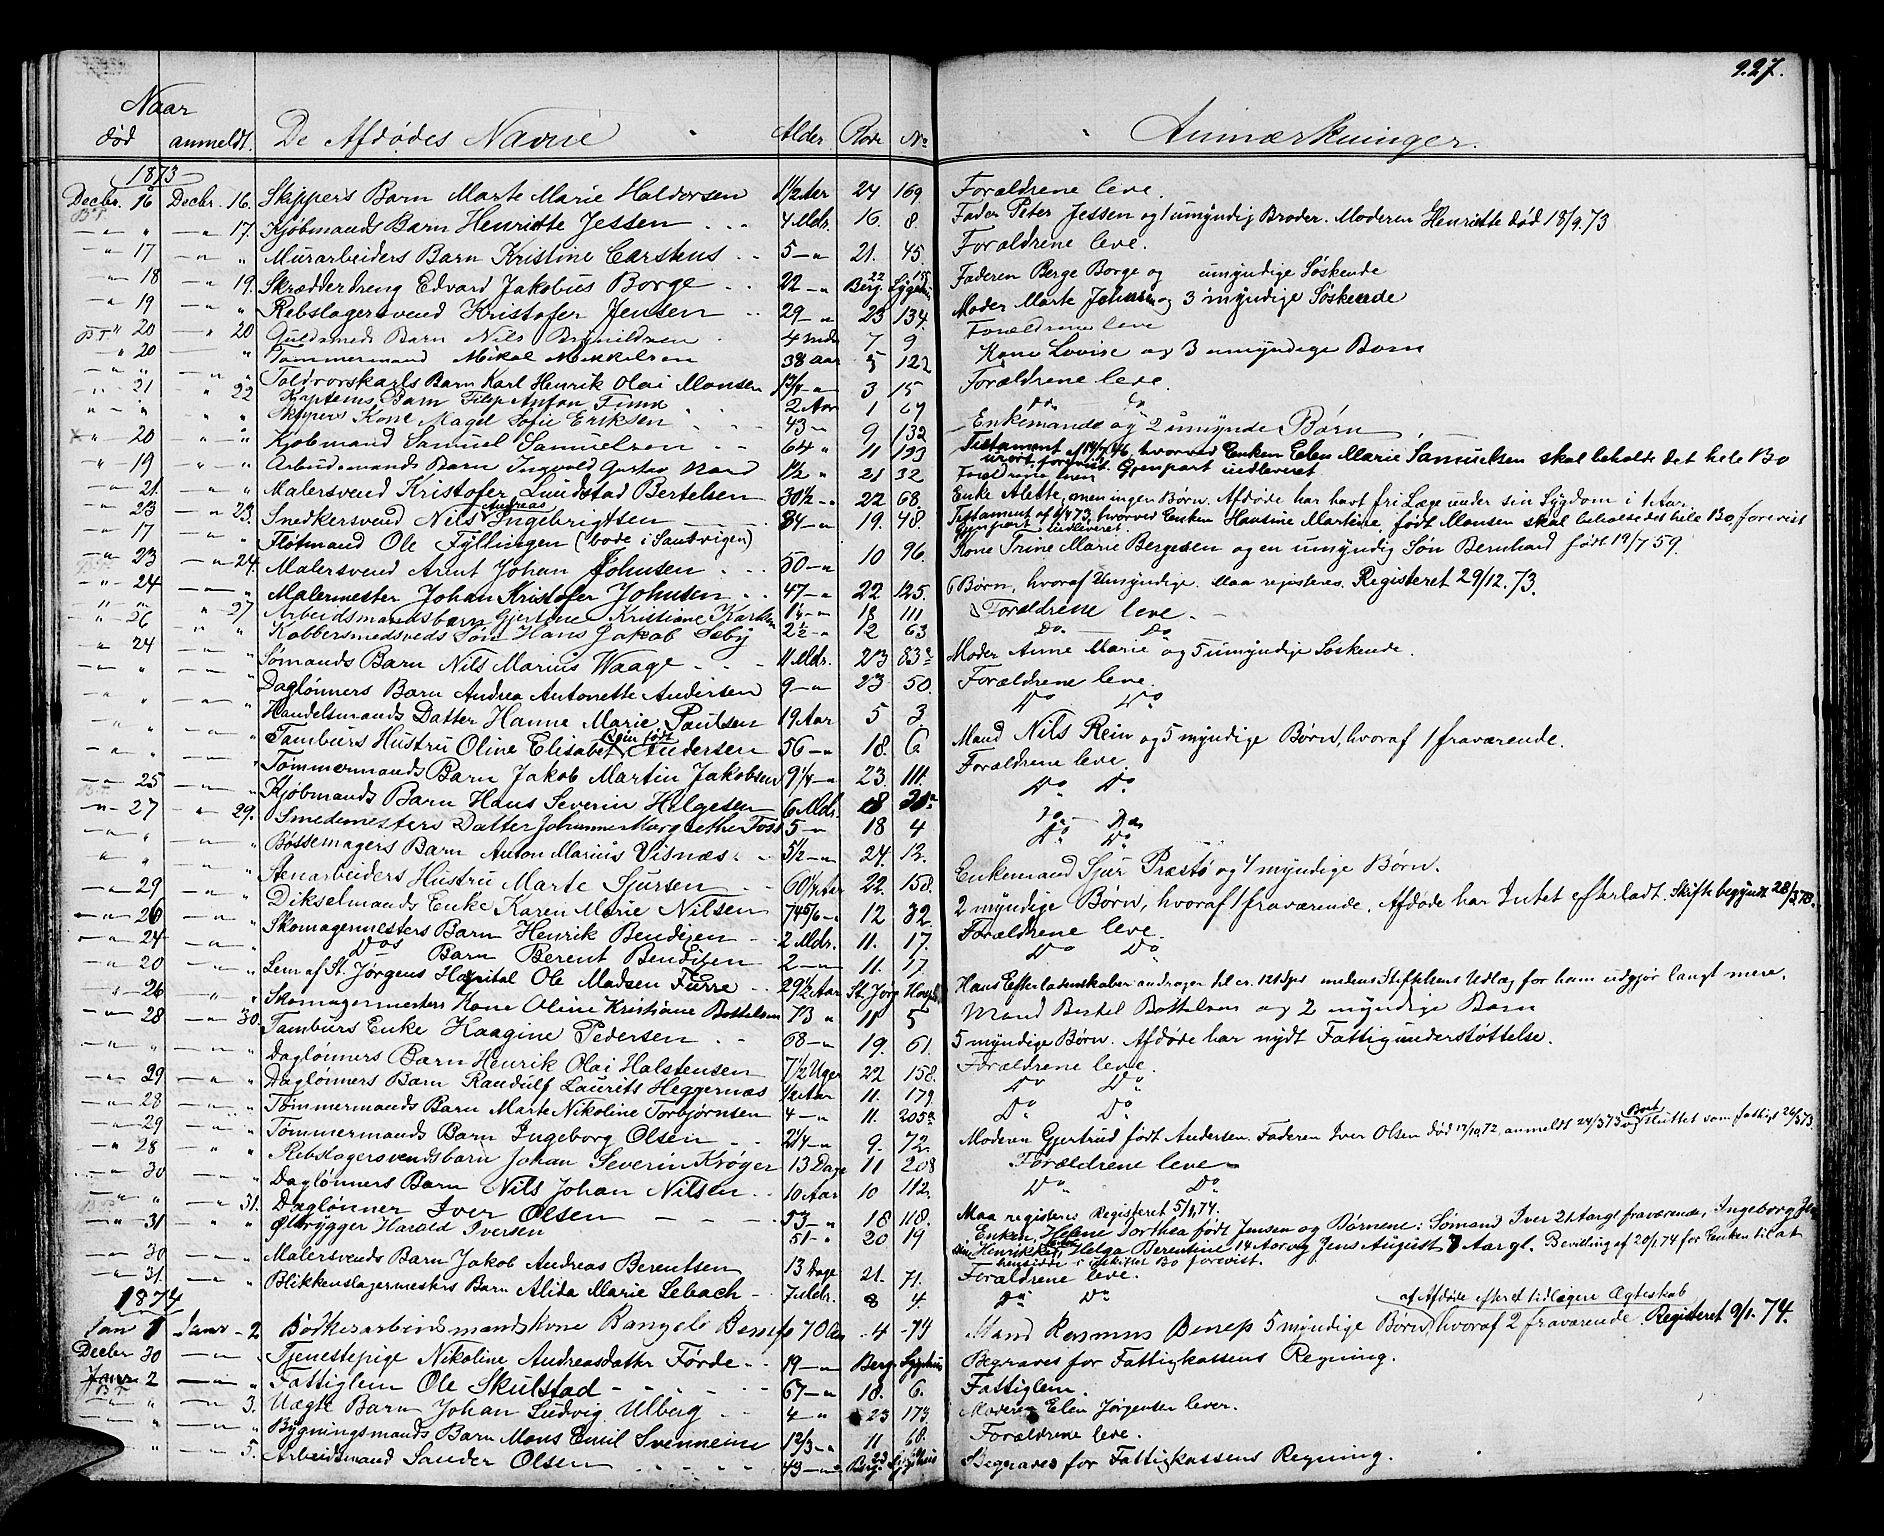 227.
Naar
død anmeldt. De Afdødes Navne Alder Rode No Anmærkninger.
1873
Decbr. 16 Decbr. 16. Skippers Barn Marte Marie Haldorsen 1½ Aar 24 169 Forældrene leve.
" 17. Kjøbmands Barn Henriette Jessen 4 Mdr. 16. 8. Fader Peter Jessen og 1 umyndig Broder. Moderen Henriette død 18/9.73
17 " Murarbeiders Barn Kristine Carshus 5 " 21. 45. Forældrene leve.
18 19. Skrædderdreng Edvard Jakobus Borge 22 " Berg. Sygehus Faderen Berge Borge og umyndige Søskende
19 " Rebslagersvend Kristofer Jensen 29 " 23 134. Moder Marte Johnsen og 3 myndige Søskende
20 20 Guldsmeds Barn Nils Brynildsen 4 Mdr 7 9 Forældrene leve
20 " Tømmermand Mikal Mikkelsen 38 Aar 5 122 Kone Lovise og 3 umyndige Børn
" " Toldrorskarls Barn Karl Henrik Olai Monsen 3 15 Forældrene leve.
21 22 Kaptems Barn Filip Anton Funk 2 Aar 1 67 Do Do
" " Skippers Kone Magd. Sofie Eriksen 43 9 132 Enkemand og 2 umynde Børn
20 " Kjøbmand Samuel Samuelsen 64 " 11 193 Testament af hvorved Enken Elen Marie Samuelsen skal beholde det hele Bo urørt, forevist. Gjenpart indleveret
19 " Arbeidsmands Barn Ingvald Gustav Nord 1½ " 21 32 Forældrene leve
21. " Malersvend Kristofer Lundstad Bertelsen 30½ 22 68. Enke Alette, men ingen Børn. Afdøde har havt fri Læge under sin Sygdom i 1 Aar.
23 23. Snedkersvend Nils Andreas Ingebrigtsen 34 19. 48. Testament af hvorved Enken Hansine Martine, født Monsen skal beholde det hele Bo, forevist Gjenpart indleveret
17 " Fløtmand Ole Tyllingen (bode i Sandvigen)
23 24. Malersvend Arnt Johan Johnsen 50 10 96. Kone Trine Marie Bergesen og en umyndig Søn Bernhard født 19/7 59
24 " Malermester Johan Kristofer Johnsen 47 22 125. 6 Børn, hvoraf 2 umyndige. Maa registeres. Registeret 29/12.73.
" 27 Arbeidsmandsbarn Gjertine Kristiane Karlsen 18 111 Forældrene leve
26 " Kobbersmedsveds Søn Hans Jakob Sebÿ 2½ 12 63 Do Do
24 " Sømands Barn Nils Marius Waage 11 Mdr. 23 83a Moder Anne Marie og 5 umyndige Søskende.
" " Daglønners Barn Andrea Antonette Andersen 9 23 50. Forældrene leve.
" " Handelsmands Datter Hanne Marie Paulsen 19 Aar 5 3. Do Do
" " Tamburs Hustru Oline Elisabet Rein født Andersen 56 18. 6 Mand Nils Rein og 5 myndige Børn, hvoraf 1 fraværende.
" " Tømmermands Barn Jakob Martin Jakobsen 9¼ 23. 111. Forældrene leve.
25 " Kjøbmands Barn Hans Severin Helgesen 6 Mdr. 8 Do Do
27 29. Smedemesters Datter Johanne Margrethe Foss 5 18 4 Do Do
" " Bøssemagers Barn Anton Marius Visnæs 5½ 24. 12. Do Do
" " Stenarbeiders Hustru Marte Sjursen 60½ Aar 22. 158. Enkemand Sjur Præstø og 4 myndige Børn.
29 " Dikselmands Enke Karen Marie Nilsen 74 5/6 12 32 2 myndige Børn, hvoraf 1 fraværende. Afdøde har Intet efterladt. Skifte begyndt 28/3 78.
26 " Skomagermesters Barn Henrik Bendixen 2 Mdr. 11. 17. Forældrene leve.
24 " Dos Barn Berent Bendixen 2 11. 17. Do Do
20 " Lem af St. Jørgens Hospital Ole Madsen Furre 29½ Aar St. Jørg. Hosp. Hans Efterladenskaber andrager til ca. 12 Sps medens Stiftelsens Udlæg for ham udgjør langt mere.
26 " Skomagermesters Kone Oline Kristiane Bottelsen 73 " 11 5 Mand Bertel Bottelsen og 2 myndige Barn
28 30. Tamburs Enke Haagine Pedersen 68 19. 61. 5 myndige Børn. Afdøde har nydt Fattigunderstøttelse.
" " Daglønners Barn Henrik Olai Halstensen 7½ Uger 22 158. Forældrene leve.
29 " Daglønners Barn Randulf Laurits Heggernæs Aar 11. 179. Do Do
28 " Tømmermands Barn Marte Nikoline Torbjørnsen 4 11. 205a Do Do
29 " Tømmermands Barn Ingeborg Olsen 2¼ 9. 72. Moderen Gjertrud født Andersen. Faderen Iver Olsen død 17/10 72, anmeldt 24/3 73 og Boet sluttet som fattigt 26/3 73
28 " Rebslagersvendsbarn Johan Severin Krøger 13 Dage 11 208 Forældrene leve
30 " Daglønners Barn Nils Johan Nilsen 10 Aar 10 112. Do Do
" 31. Daglønner Iver Olsen 53 18 118. Maa registeres Registeret 5/1.74. Enken, Helene Dorthea født Jensen og Børnene: Sømand Iver 21 Aar gl fraværende, Ingeborg
31 " Ølbrygger Harald Iversen 51 20 19 Henrikke, Helga Berentine 14 Aar og Jens August 7 Aar gl. Bevilling af 20/1.74 for Enken til at hensidde i uskiftet Bo forevist.
30 " Malersvends Barn Jakob Andreas Berentsen 13 Dage 21. 71. Forældrene leve.
31. " Blikkenslagermesters Barn Alida Marie Sebach 7 Mdr. 8 4. Do Do
1874 af Afdøde efteret tidligere Ægteskab
Jan 1 Janr 2 Bødkerarbeidsmands Kone Rangele Benep 70 4 74 Mand Rasmus Benep 5 myndige Børn, hvoraf 2 fraværende. Registeret 9/1.74.
Decbr 30 " Tjenestepige Nikoline Andreasdatter Førde 19 Berg. Sygehus Begraves for Fattigkassens Regning.
Janr 2 " Fattiglem Ole Skulstad 67 18. 6. Fattiglem.
" 3. Uægte Barn Johan Ludvig Ulberg 4 " 23 173. Moderen Elen Jørgensen lever.
" " Bygningsmands Barn Mons Emil Svenneim 1 2/3 11 68. Forældrene leve.
" 5. Arbeidsmand Sander Olsen 43 Berg. Sygehus Begraves for Fattigkassens Regning.